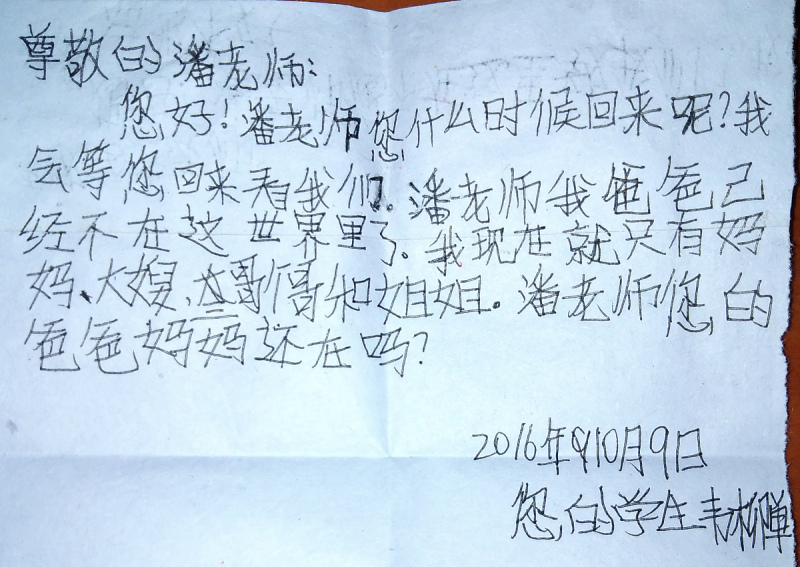 尊敬的潘老师:
您好!潘老师您什么时候回来呢?我
会等您回来看我们。潘老师我爸爸已
经不在这世界里了。我现在就只有妈
妈、大嫂、大哥哥和姐姐。潘老师您的
爸爸妈妈还在吗?
2016年10月9日
您的学生韦柳单